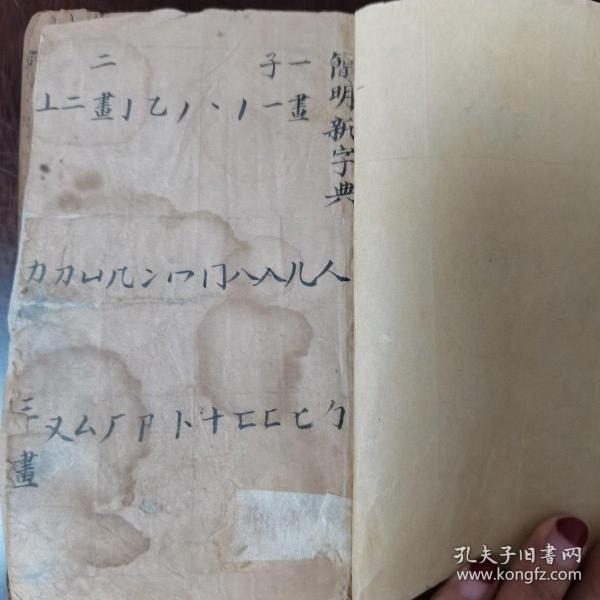 簡明新字典
子
一畫 一丨丶丿乙亅
二畫 二亠
人儿入八冂冖冫几凵刀力
勹匕匚匸十卜卩厂厶又
三畫
孔夫子旧书网
www.kongfz.com